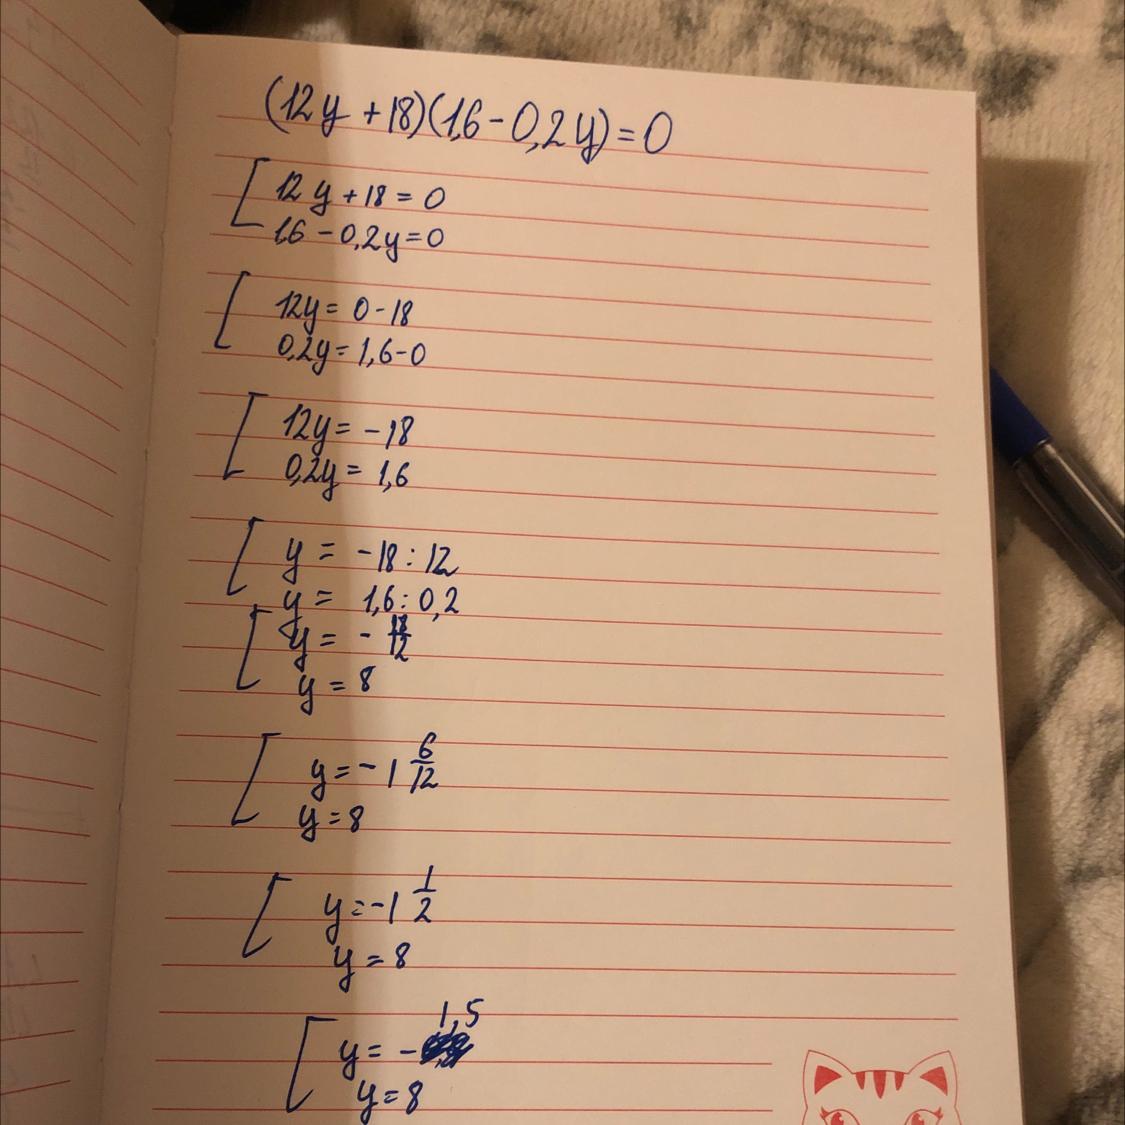 (12y + 18)(1,6 - 0,2y) = 0
[ 12y + 18 = 0
1,6 - 0,2y = 0
[ 12y = 0 - 18
0,2y = 1,6 - 0
[ 12y = - 18
0,2y = 1,6
[ y = - 18 : 12
y = 1,6 : 0,2
[ y = - 18/12
y = 8
[ y = - 1 6/12
y = 8
[ y = - 1 1/2
y = 8
[ y = - 1,5
y = 8